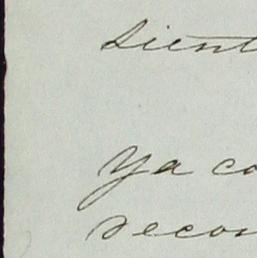 sient
Ya co
recon